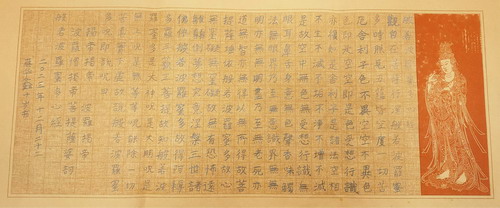 觀自在菩薩行深般若波羅蜜
多時照見五蘊皆空度一切苦
厄舍利子色不異空空不異色
色即是空空即是色受想行識
亦復如是舍利子是諸法空相
不生不滅不垢不淨不增不減
是故空中無色無受想行識無
眼耳鼻舌身意無色聲香味觸
法無眼界乃至無意識界無無
明亦無無明盡乃至無老死亦
道無智亦無得以無所得故菩
提薩埵依般若波羅蜜多故心
無罣礙無罣礙故無有恐怖遠
離顛倒夢想究竟涅槃三世諸
佛依般若波羅蜜多故得阿耨
多羅三藐三菩提故知般若波
羅蜜多是大神咒是大明咒是
無上咒是無等等咒能除一切
苦真實不虛故說般若波羅蜜
多咒即說咒曰
揭諦揭諦 波羅揭諦
波羅僧揭諦菩提薩婆訶
般若波羅蜜多心經